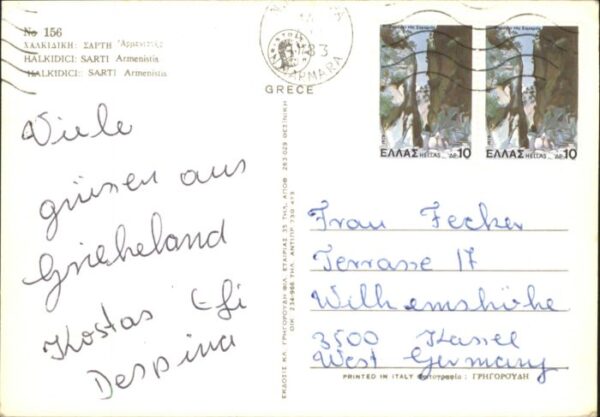 No 156
ΧΑΛΚΙΔΙΚΗ: ΣΑΡΤΗ Ἀρμενιστής
HALKIDICI: SARTI Armenistis
HALKIDICI: SARTI Armenistis
Viele
grüsen aus
Grieheland
Kostas Efi
Despina
83
GREECE
ΕΛΛΑΣ HELLAS ΔΡ. 10
ΕΛΛΑΣ HELLAS ΔΡ. 10
Frau Fecker
Terrasse 17
Wilhemshöhe
3500 Kassel
West Germany
PRINTED IN ITALY Φωτογραφία: ΓΡΗΓΟΡΟΥΔΗ
ΕΚΔΟΣΙΣ ΚΛ. ΓΡΗΓΟΡΟΥΔΗ ΦΙΛ. ΕΤΑΙΡΙΑΣ 35 ΤΗΛ. ΑΠΟΘ. 263.029 ΘΕΣ/ΝΙΚΗ
ΟΙΚ. 234-966 ΤΗΛ. ΑΝΤΙΠΡ 730 473